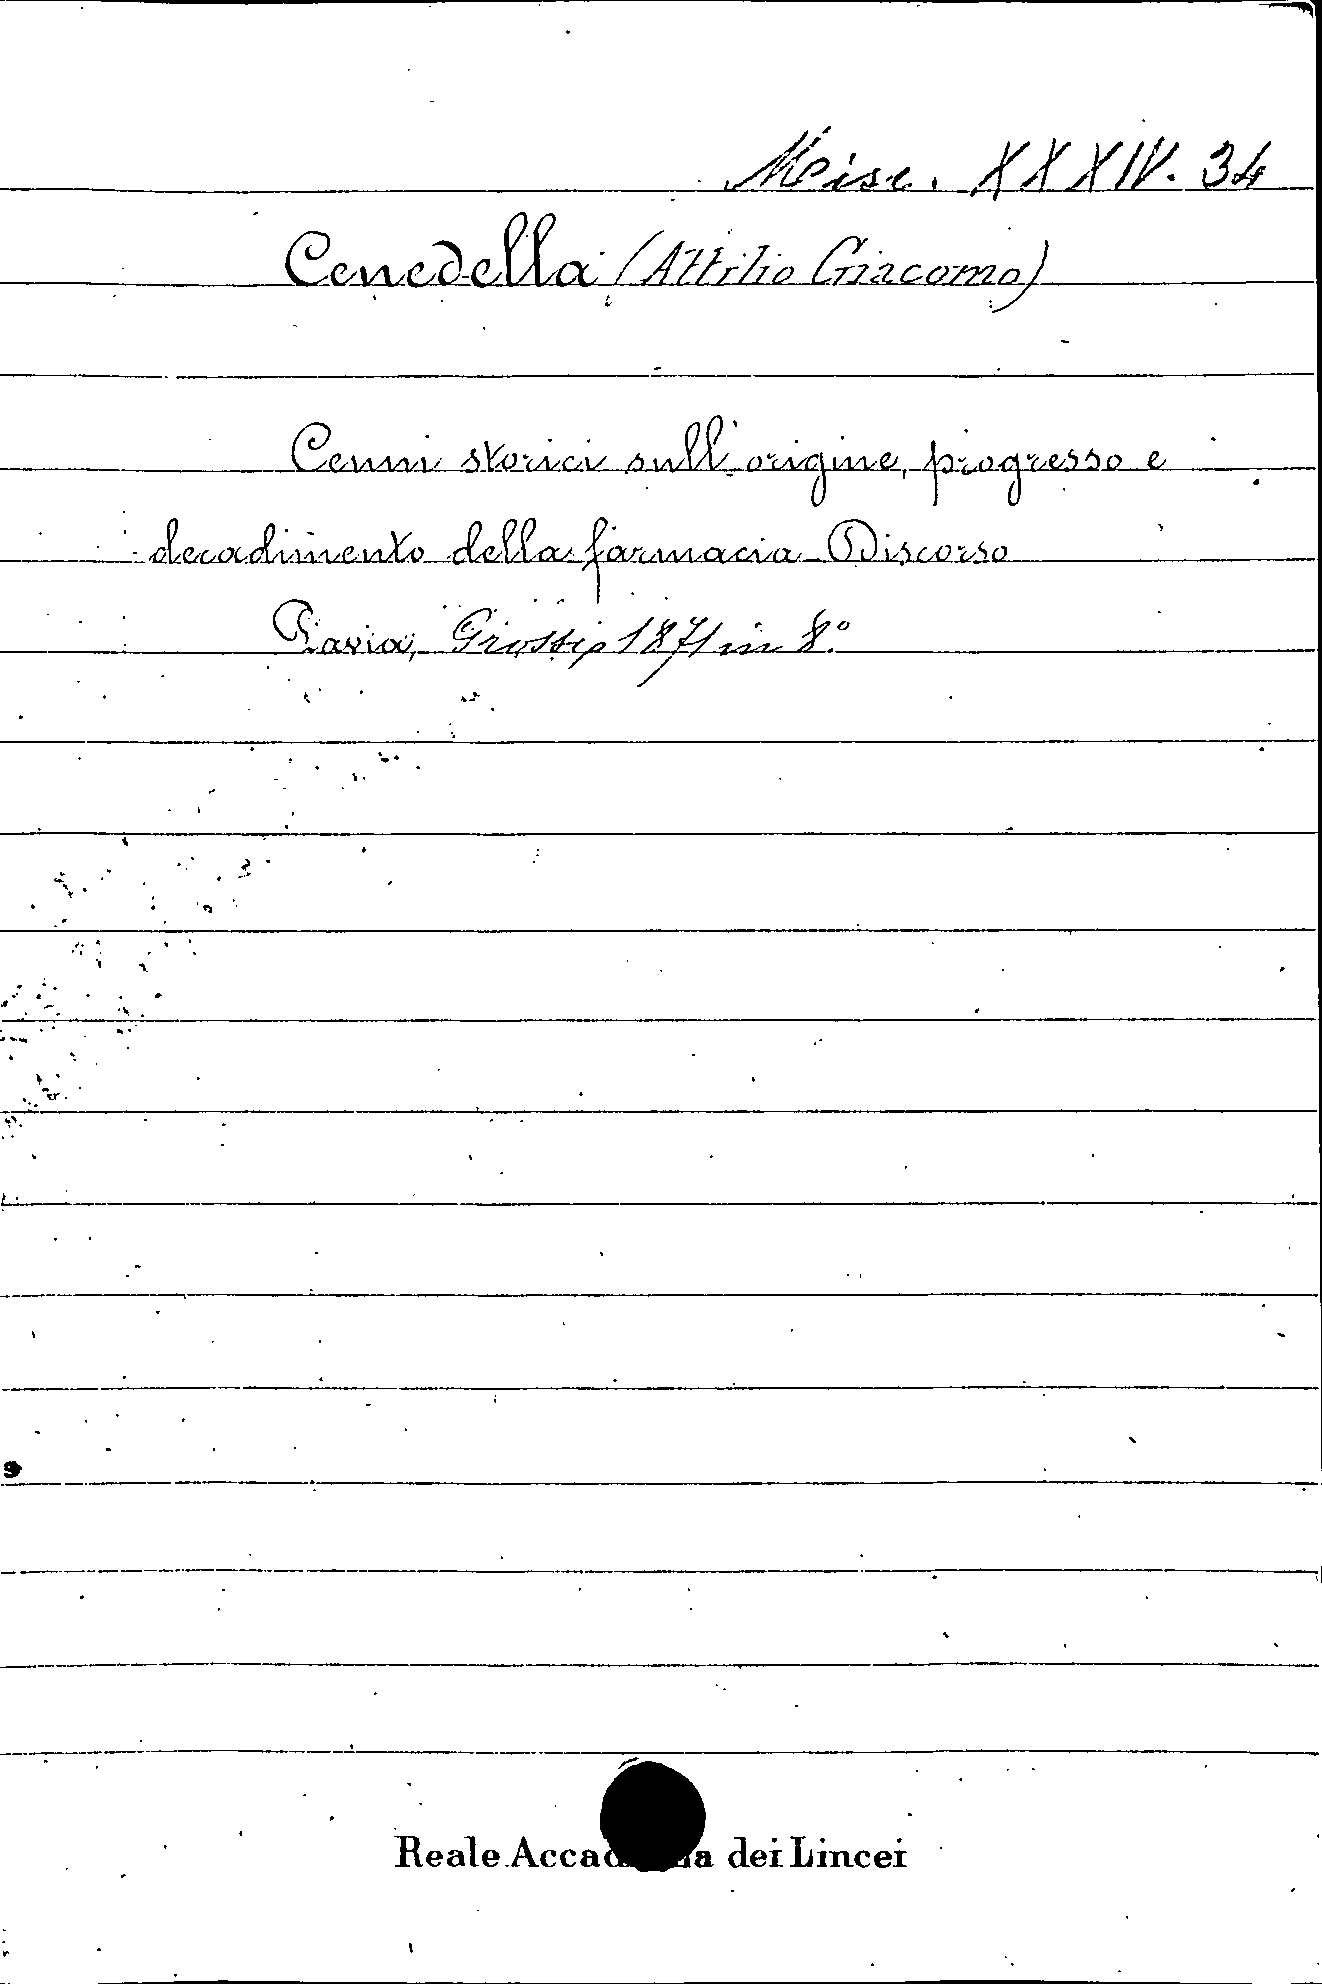 Misc. XXXIV. 34
Cenedella (Attilio Giacomo)
Cenni storici sull'origine, progresso e
decadimento della farmacia Discorso
Pavia, Grossi, 1871 in 8.º
Reale Accademia dei Lincei